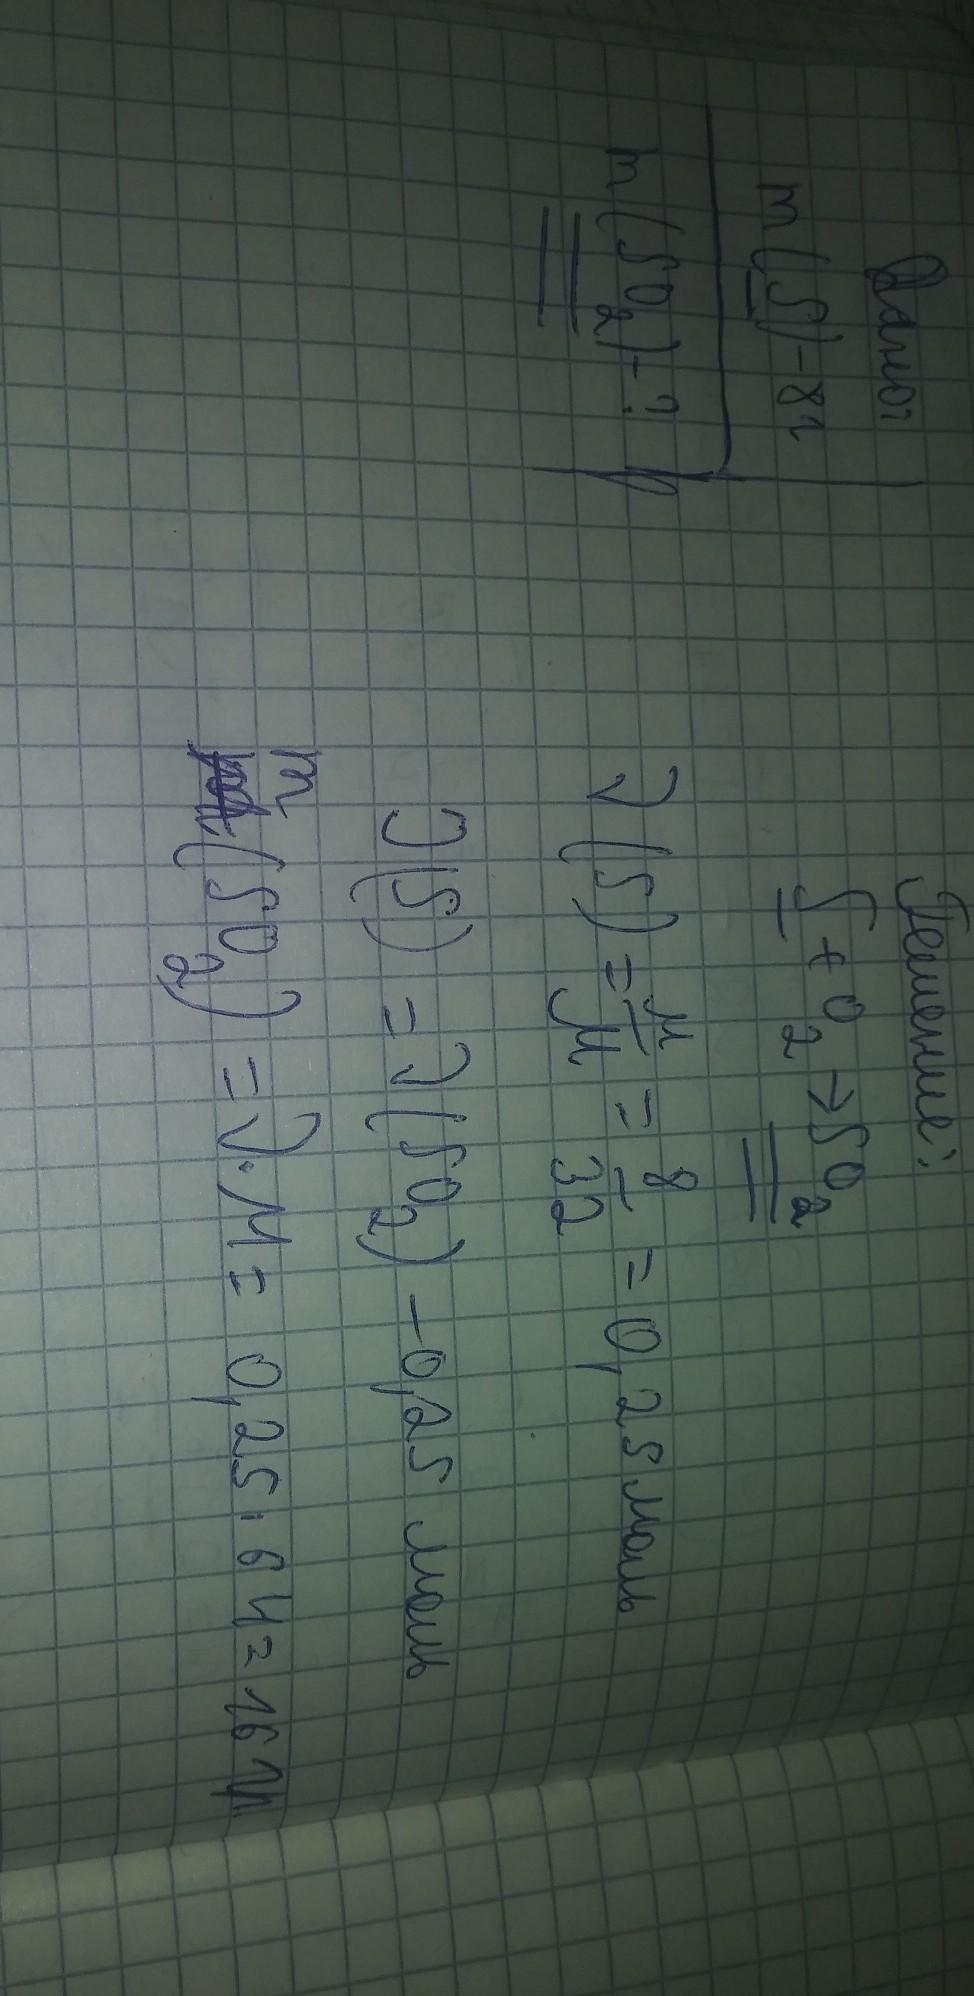 Дано:
m(S)-8г
m(SO2)-?
Решение:
S + O2 → SO2
ν(S) = м/М = 8/32 = 0,25 моль
ν(S) = ν(SO2) - 0,25 моль
m(SO2) = ν·М = 0,25·64=16 гр